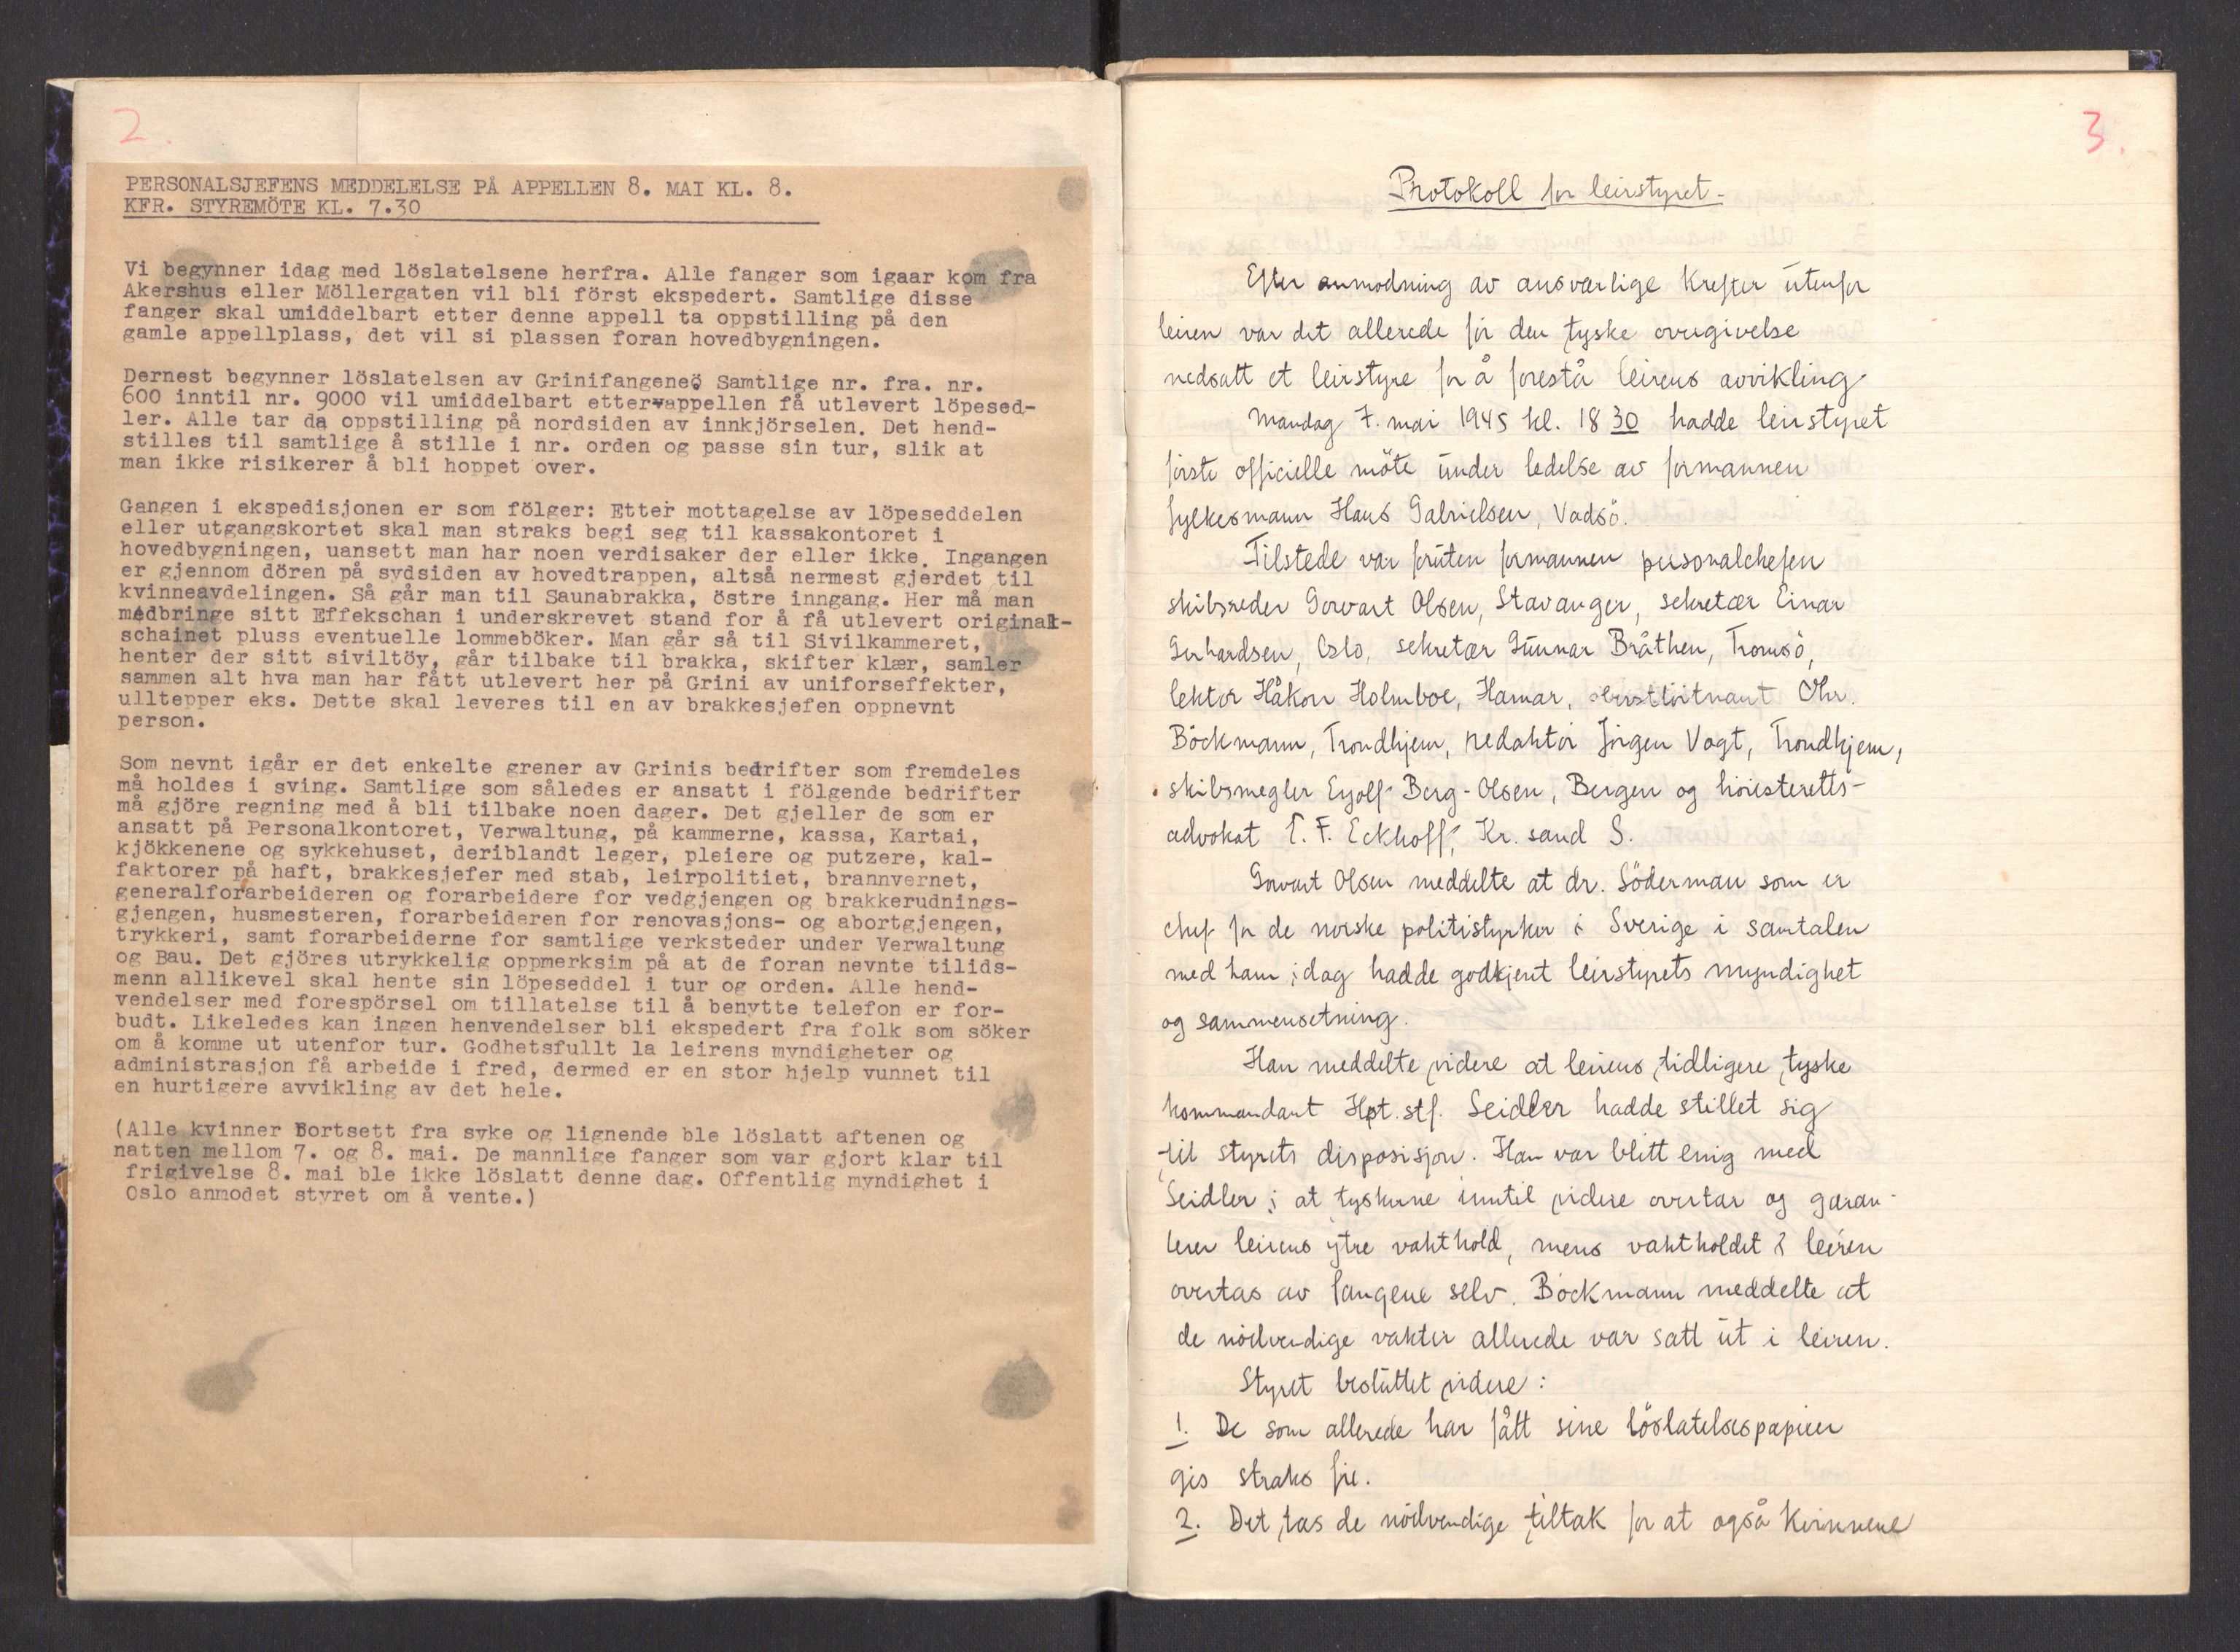 2.
PERSONALSJEFENS MEDDELELSE PÅ APPELLEN 8. MAI KL. 8.
KFR. STYREMÖTE KL. 7.30
Vi begynner idag med löslatelsene herfra. Alle fanger som igaar kom fra
Akershus eller Möllergaten vil bli först ekspedert. Samtlige disse
fanger skal umiddelbart etter denne appell ta oppstilling på den
gamle appellplass, det vil si plassen foran hovedbygningen.
Dernest begynner löslatelsen av Grinifangeneö Samtlige nr. fra. nr.
600 inntil nr. 9000 vil umiddelbart ettervappellen få utlevert löpesed-
ler. Alle tar da oppstilling på nordsiden av innkjörselen. Det hend-
stilles til samtlige å stille i nr. orden og passe sin tur, slik at
man ikke risikerer å bli hoppet over.
Gangen i ekspedisjonen er som fölger: Etter mottagelse av löpeseddelen
eller utgangskortet skal man straks begi seg til kassakontoret i
hovedbygningen, uansett man har noen verdisaker der eller ikke. Ingangen
er gjennom dören på sydsiden av hovedtrappen, altså nermest gjerdet til
kvinneavdelingen. Så går man til Saunabrakka, östre inngang. Her må man
medbringe sitt Effekschan i underskrevet stand for å få utlevert original-
schainet pluss eventuelle lommeböker. Man går så til Sivilkammeret,
henter der sitt siviltöy, går tilbake til brakka, skifter klær, samler
sammen alt hva man har fått utlevert her på Grini av uniforseffekter,
ulltepper eks. Dette skal leveres til en av brakkesjefen oppnevnt
person.
Som nevnt igår er det enkelte grener av Grinis bedrifter som fremdeles
må holdes i sving. Samtlige som således er ansatt i fölgende bedrifter
må gjöre regning med å bli tilbake noen dager. Det gjeller de som er
ansatt på Personalkontoret, Verwaltung, på kammerne, kassa, Kartai,
kjökkenene og sykkehuset, deriblandt leger, pleiere og putzere, kal-
faktorer på haft, brakkesjefer med stab, leirpolitiet, brannvernet,
generalforarbeideren og forarbeidere for vedgjengen og brakkerudnings-
gjengen, husmesteren, forarbeideren for renovasjons- og abortgjengen,
trykkeri, samt forarbeiderne for samtlige verksteder under Verwaltung
og Bau. Det gjöres utrykkelig oppmerksim på at de foran nevnte tilids-
menn allikevel skal hente sin löpeseddel i tur og orden. Alle hend-
vendelser med forespörsel om tillatelse til å benytte telefon er for-
budt. Likeledes kan ingen henvendelser bli ekspedert fra folk som söker
om å komme ut utenfor tur. Godhetsfullt la leirens myndigheter og
administrasjon få arbeide i fred, dermed er en stor hjelp vunnet til
en hurtigere avvikling av det hele.
(Alle kvinner bortsett fra syke og lignende ble löslatt aftenen og
natten mellom 7. og 8. mai. De mannlige fanger som var gjort klar til
frigivelse 8. mai ble ikke löslatt denne dag. Offentlig myndighet i
Oslo anmodet styret om å vente.)
3.
Protokoll for leirstyret-
Efter anmodning av ansvarlige krefter utenfor
leiren var det allerede för den tyske overgivelse
nedsatt et leirstyre for å forestå leirens avvikling
Mandag 7. mai 1945 kl. 18 30 hadde leirstyret
förste officielle möte under ledelse av formannen
fylkesmann Hans Gabrielsen, Vadsö.
Tilstede var foruten formannen personalchefen
skibsreder Gowart Olsen, Stavanger, sekretær Einar
Gerhardsen, Oslo, sekretær Gunnar Bråthen, Tromsö,
lektor Håkon Holmboe, Hamar, oberstlöitnant Chr.
Böckmann, Trondhjem, redaktör Jörgen Vogt, Trondhjem,
skibsmegler Eyolf Berg-Olsen, Bergen og höiesteretts-
advokat T. F. Eckhoff, Kr. sand S.
Gowart Olsen meddelte at dr. Söderman som er
chef for de norske politistyrker i Sverige i samtalen
med ham idag hadde godkjent leirstyrets myndighet
og sammensetning.
Han meddelte videre at leirens tidligere tyske
kommandant Hpt. stf. Seidler hadde stillet sig
til styrets disposisjon. Han var blitt enig med
Seidler i at tyskerne inntil videre overtar og garan-
terer leirens ytre vakthold, mens vaktholdet i leiren
overtas av fangene selv. Böckmann meddelte at
de nödvendige vakter allerede var satt ut i leiren.
Styret besluttet videre:
1. De som allerede har fått sine löslatelsespapirer
gis straks fri.
2. Det tas de nödvendige tiltak for at også kvinnene